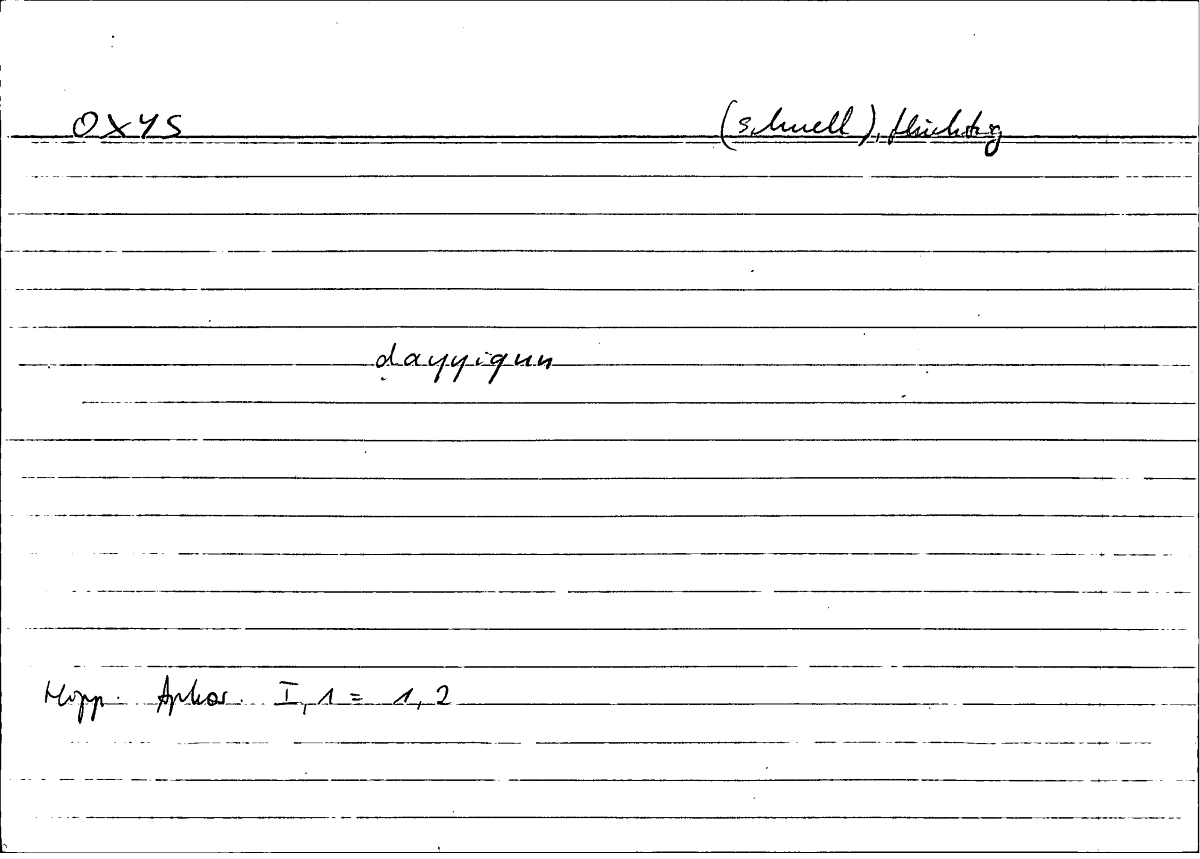 OXYS (schnell), flüchtig
ḍayyiqun
Hipp. Aphor. I, 1 = 1, 2